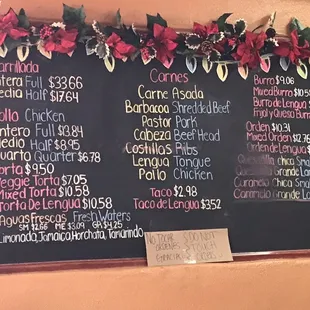 Parrillada
Entera Full $33.66
Media Half $17.64
Pollo Chicken
Entero Full $13.84
Medio Half $8.95
Cuarto Quarter $6.78
Torta $9.50
Veggie Torta $7.05
Mixed Torta $10.58
Torta De Lengua $10.58
Aguas Frescas Fresh Waters
SM $2.66 ME $3.09 GR $4.25
Limonada, Jamaica, Horchata, Tamarindo
Carnes
Carne Asada
Barbacoa Shredded Beef
Pastor Pork
Cabeza Beef Head
Costillas Ribs
Lengua Tongue
Pollo Chicken
Taco $2.98
Taco de Lengua $3.52
NO TOCAR DO NOT
GRACIAS
Burro $9.04
Mixed Burro $10
Burro de Lengua
Frijol y Queso Burro
Orden $10.31
Mixed Orden $12.76
Orden de Lengua
Quesadilla Chica Small
Quesadilla Grande
Caramelo Chica Small
Caramelo Grande